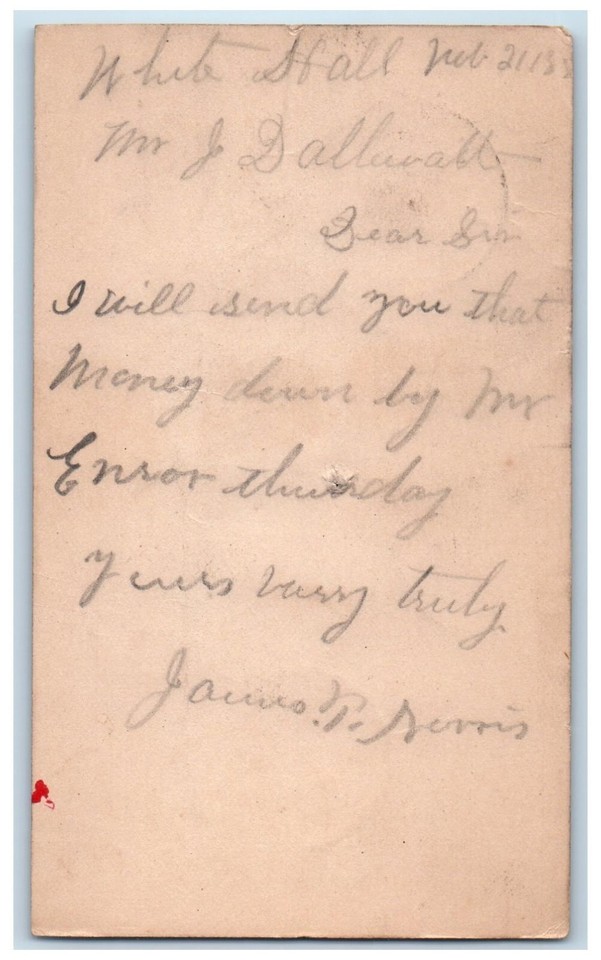 White Hall Feb 21 188
Mr J Dallwatt
Dear Sir
I will send you that
Money down by Mr
Ensor thursday
yours varry truly
James. T. Norris